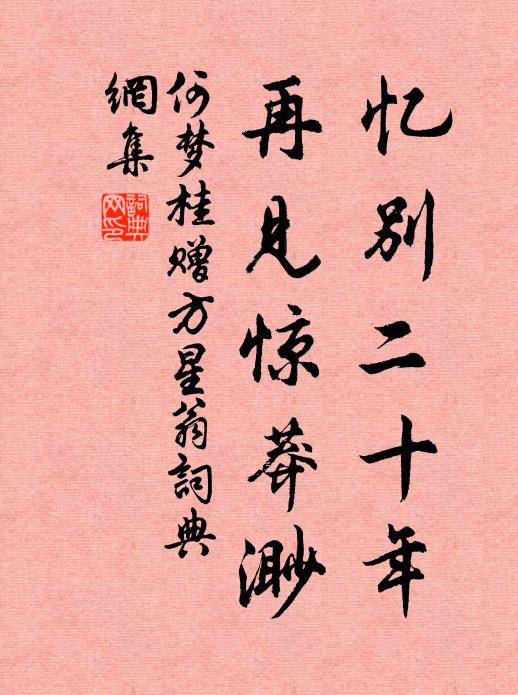 忆别二十年
再见惊莽渺
何梦桂赠方星翁詞典
網集
詞典
网印